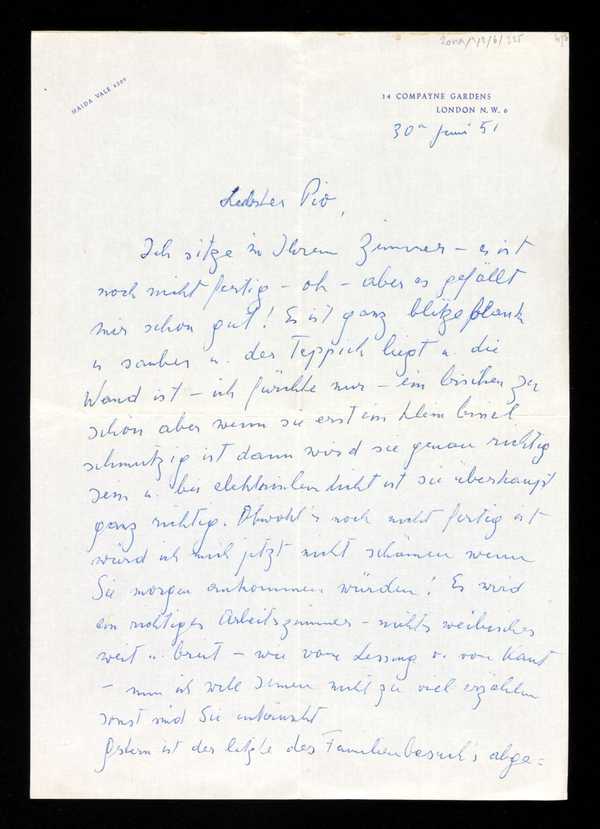 MAIDA VALE
14 COMPAYNE GARDENS
LONDON N.W. 6
30 Juni 51
Liebster Pio,
Ich sitze in Ihrem Zimmer – es ist
noch nicht fertig – oh – aber es gefällt
mir schon gut! Es ist ganz blitzeblank
u sauber u. der Teppich liegt u. die
Wand ist – ich fürchte nur – ein bischen zu
schön aber wenn sie erst ein klein bissel
schmutzig ist dann wird sie genau richtig
sein u. bei elektrischem Licht ist sie überhaupt
ganz richtig. Obwohl's noch nicht fertig ist
würd ich mich jetzt nicht schämen wenn
Sie morgen ankommen würden! Es wird
ein richtiges Arbeitszimmer – nichts weibisches
weit u. breit – wie vom Lessing o. von Kant
– nun ich will Ihnen nicht zu viel erzählen
sonst sind Sie enttäuscht
Gestern ist der letzte des Familienbesuch's abge=